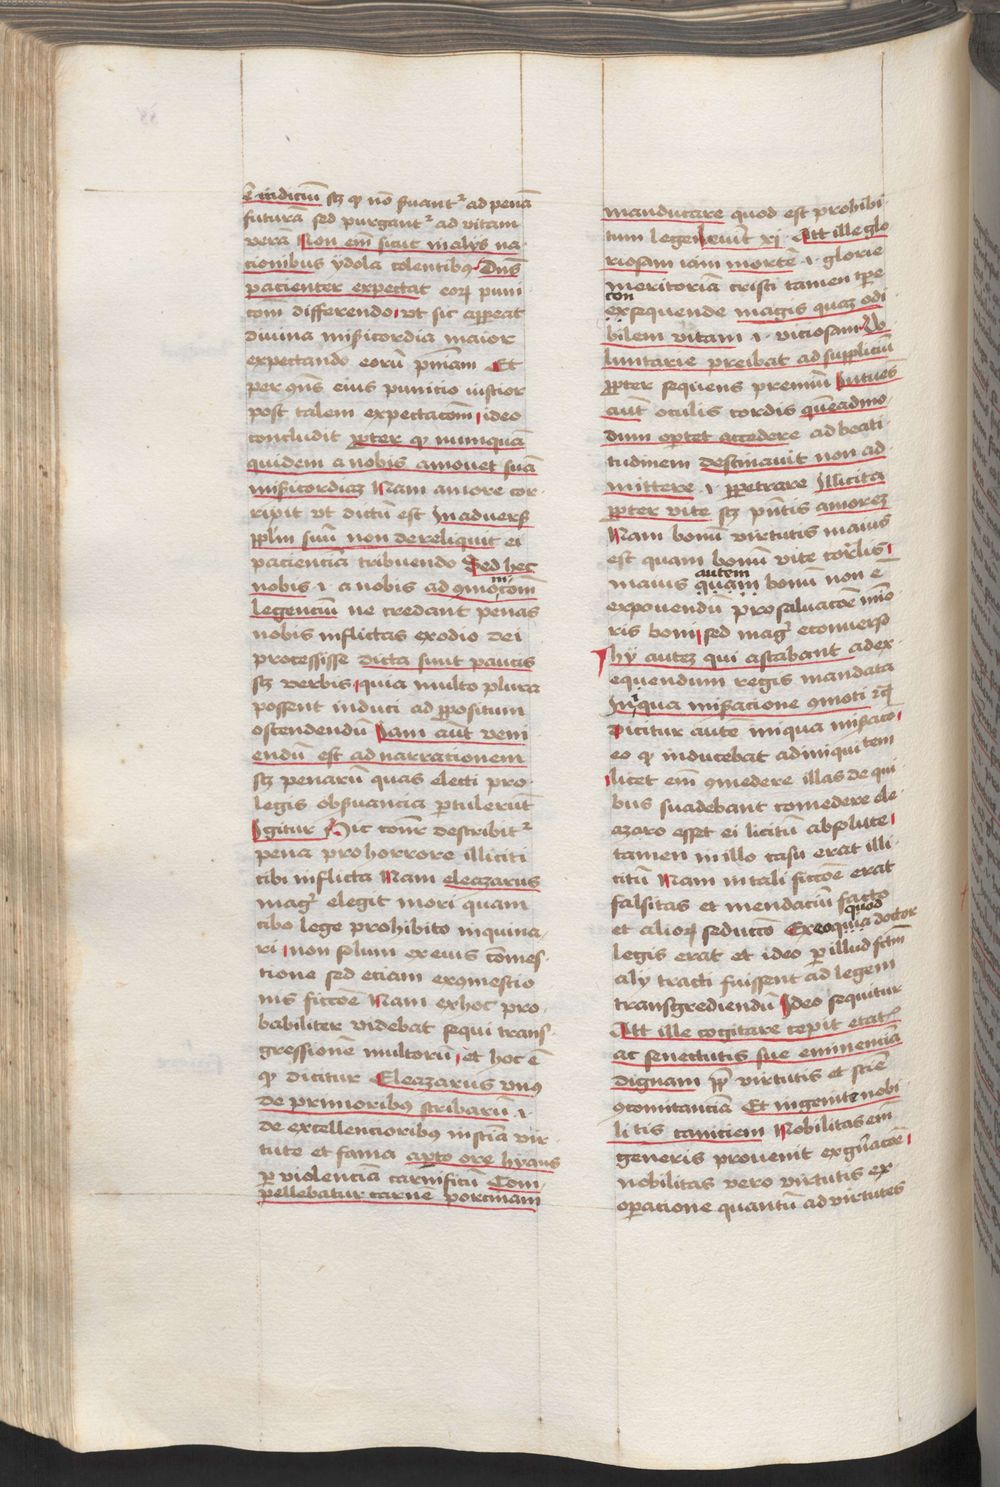 Ẽ indiciũ scꝫ qꝫ nõ ẜuant᷑ ad penã
futurã sed purgant᷑ ad vitam
verã Non em̃ sicut in alijs na
cionibus ydola colentibꝯ Dns̃
pacienter expectat eoꝝ puni
cõm differendo vt sic appeat
diuina mis̃icordia maior
expectando eorũ pnĩam Et
per ꝯñs eius punicio iustior
post talem expectacõm ideo
concludit ꝓpter qꝫ nunquã
quidem a nobis amouet suã
mis̃icordiaꝫ Nam amore cor
ripit vt dictũ est In aduersꝭ
ppl̃m suũ non dereliquit ei
pacienciã tribuendo Sed hec
nobis .i. a nobis ad ꝯmõicõm
legenciũ ne credant penas
nobis inflictas ex odio dei
processisse dicta sunt paucis
scꝫ verbis quia multo plura
possent induci ad ꝓpositum
ostendendũ Iam aũt veni
endũ est ad narrationem
scꝫ penarũ quas electi pro
legis obẜuancia ꝑtulerũt
Igitur Hic cõnr̃ describit᷑
pena pro horrore illiciti
cibi inflicta Nam eleazarus
mag᷑ elegit mori quam
cibo lege prohibito inquina
ri non solum ex eius comes
tione sed eciam ex ꝯmestio
nis ficcõe Nam ex hoc pro
babiliter videbat sequi trans
gressionẽ multorũ et hoc ẽ
qꝫ dicitur Eleazarus vnꝯ
de primoribꝯ scribarũ .i.
de excellencioribꝯ in sciã vir
tute et fama apto ore hyans
ꝑ violenciã carnificũ Com
pellebatur carnẽ porcinam
manducare quod est prohibi
tum legẽ leuit xi Att ille glo
riosam iam mortẽ .i. glorie
meritoriã cristi tamen tp̃e
con
exsequende magis quaꝫ odi
bilem vitam .i. viciosam Vo
luntarie preibat ad suppliciũ
ꝓpter sequens premiũ Intues
aũt oculis cordis quẽadmo
dum oꝑtet accedere ad beati
tudinem destinauit non ad
mittere .i. ꝑpetrare Illicita
ꝓpter vite scꝫ pñtis amoreꝫ
Nam bonũ virtutis maius
est quam bonũ vite corꝑlis
autem
maius quam bonũ non ẽ
exponendũ pro saluacõe mĩo
ris boni sed mag᷑ econuerso
hÿ auteꝫ qui astabant ad ex
equendum regis mandata
Iniqua mis̃acione ꝯmoti ⁊cꝫ
Dicitur autẽ iniqua mis̃acõ
eo qꝫ inducebat ad iniquitem
licet em̃ ꝯmedere illas de qui
bus suadebant comedere ele
azaro esset ei licitũ absolute
tamen in illo casu erat illi
citũ Nam in tali ficcõe erat
falsitas et mendaciũ facto
et alioꝝ seduccõ Ex eo quia quod doctor
legis erat et ideo ꝑ illud fc̃m
alÿ tracti fuissent ad legem
transgrediendũ Ideo sequitur
Att ille cogitare cepit etatꝭ
ac senectutis sue eminenciã
dignam ꝓpt̃ virtutis et sciẽ
ꝯcomitanciã Et ingenite nobi
litis caniciem Nobilitas em̃
generis prouenit ex gñacõe
nobilitas vero virtutis ex
oꝑacione quantũ ad virtutes